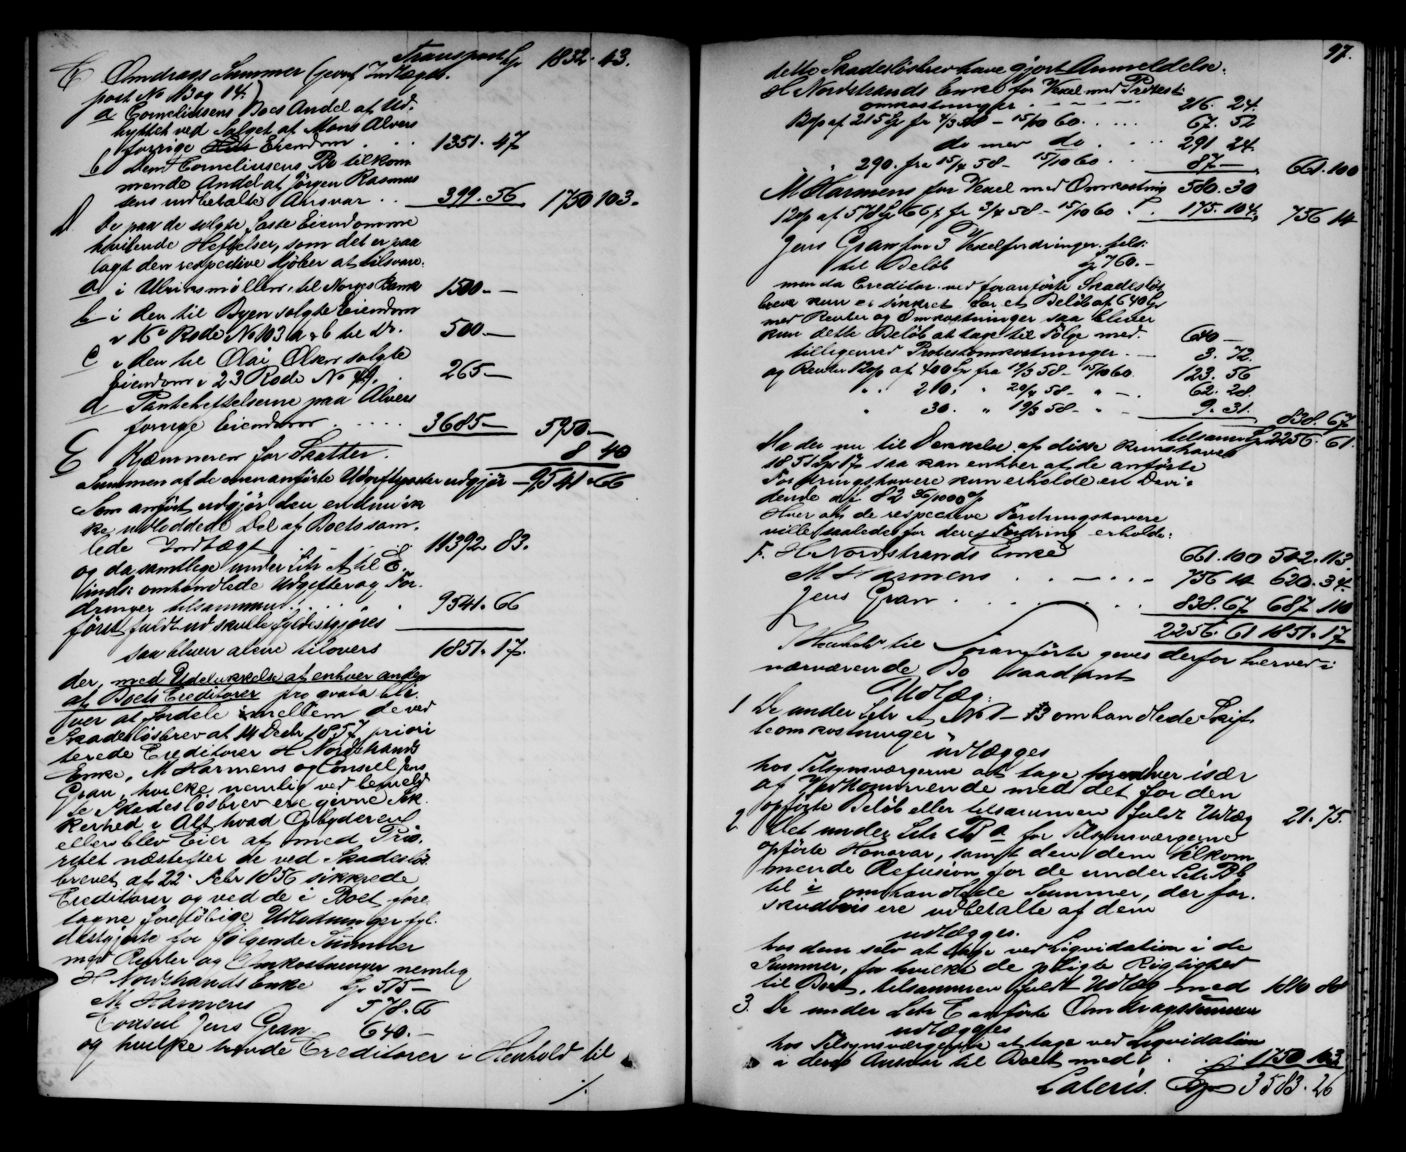 Transport Spd 1832. 43.
C Omdrags Summer (jevnf Indtægts
post No 13 og 14)
a Corneliussens Boes Andel af Ud-
byttet ved Salget af Mons Alvers
forrige Eiendom . . 1351. 47
b dem Corneliussens Bo tilkom
mende Andel af Jørgen Rasmus
sens indbetalte Ansvar . . 399. 56 1750 103.
D De paa de solgte faste Eiendomme
hvilende Heftelser, som det er paa
lagt den respective Kjøber at tilsvare:
a i Ulriksmøllen, til Norges Bank 1500 —
b i den til Byen solgte Eiendom
i Rode No 103 a & b til Do. 500 —
c i den til Olai Olsen solgte
Eiendom i 23 Rode No 49. . 265 —
d Panteheftelserne paa Alvers
forrige Eiendom . . . . 3685 — 5950 —
E Kjæmneren for Skatter. 8 40
Summen af de ovenanførte Udgiftsposter udgjør — 9541. 66
Som anført udgjør den endnu ik
ke udloddede Del af Boets sam-
lede Indtægt 11392. 83.
og da samtlige under Litr A til E
inds: omhandlede Udgifter og For-
dringer tilsammen . . . . 9541. 66
først fuldt ud skulle fyldestgjøres
saa bliver alene tilovers 1851. 17.
der, med Udelukkelse af enhver anden
af Boets Creditorer pro qvota bli-
ver at fordele imellem de ved
Skadesløsbrev af 14 Decbr 1857 priori
terede Creditorer H Nordstrands
Enke, M Harmens og Consul Jens
Gran, hvilke nemlig ved bemeld
te Skadesløsbrev ere givne Sik-
kerhed i Alt hvad Opbyderen
eller blev Eier af med Prio-
ritet næstefter de ved Skadesløs
brevet af 22 Febr 1856 sikkrede
Creditorer og ved de i Boet fore-
tagne foreløbige Udlodninger fyl-
destgjorte for følgende Summer
med Renter og Omkostninger nemlig
H Nordstrands Enke Spd 515 —
M Harmens 578. 66
Consul Jens Gran 640. —
og hvilke trende Creditorer i Henhold til
./.
97.
dette Skadesløsbrev have gjort Anmeldelse:
H Nordstrands Enke for Vexel med Protest
omkostninger . — — — — 26. 24.
12 p af 215 Spd fr 4/3 58 — 15/10 60. . . . 67. 52
do mer do . . . . 291 24.
290. fra 15/4 58 — 15/10 60. . . 87 — 661. 100
M Harmens for Vexel med Omkostning 580. 30
12 p af 578 Spd 66 s fr 3/4 58 — 15/10 60. . 175. 104. 756 14
Jens Gran for 3 Vexelfordringer tils:
til Beløb Spd 760. —
men da Creditor ved foranførte Skadesløs
brev kun er sikkret for et Beløb af 640 Spd
med Renter og Omkostninger saa bliver
kun dette Beløb at tage til Følge med. 640 —
tilligemed Protestomkostninger . — 3. 72.
og Renter 12 p af 400 Spd fr 17/3 58 — 15/10 60. 123. 56
" . 210. " 29/4 58 — " — . 62. 28.
" 30. " 19/3 58 — " — 9. 31. 838. 67
tilsammen Spd 2256. 61
Da der nu til Dækkelse af disse kun haves
1851 Spd 17 saa kan enhver af de anførte
Fordringshavere kun erholde en Divi-
dende af 82
Hver af de respective Fordringshavere
ville saaledes for deres Fordring erholde:
F. H Nordstrands Enke 661. 100 542. 113.
M Harmens . . — . . 756 14 620. 34.
Jens Gran . . . . . . 838. 67 687 110
2256. 61 1851. 17
I Henhold til Foranførte gives derfor herved i
nærværende Bo saadant
Udlæg:
1 De under Litr A No 1 — 13 omhandlede Skif
teomkostninger
udlægges
hos Tilsynsværgerne at tage for enhver især
af Vedkommende med det for den
opførte Beløb eller tilsammen fuldt Udlæg 21. 75.
2 Det under Litr B a for Tilsynsværgerne
opførte Honorar, samt den dem tilkom
mende Refusion for de under Litr B b
til i omhandlede Summer, der for-
skudsvis ere udbetalte af dem
udlægges.
hos dem selv at tage ved Liqvidation i de
Summer, for hvilke de pligte Rigtighed
til Boet, tilsammen fuldt Udlæg med 1810 80
3. De under Litr C anførte Omdragssummer
udlægges
hos Tilsynsværgerne at tage ved Liqvidation
i deres Ansvar til Boet med . . 1750 103
Lateris. Spd 3583. 26